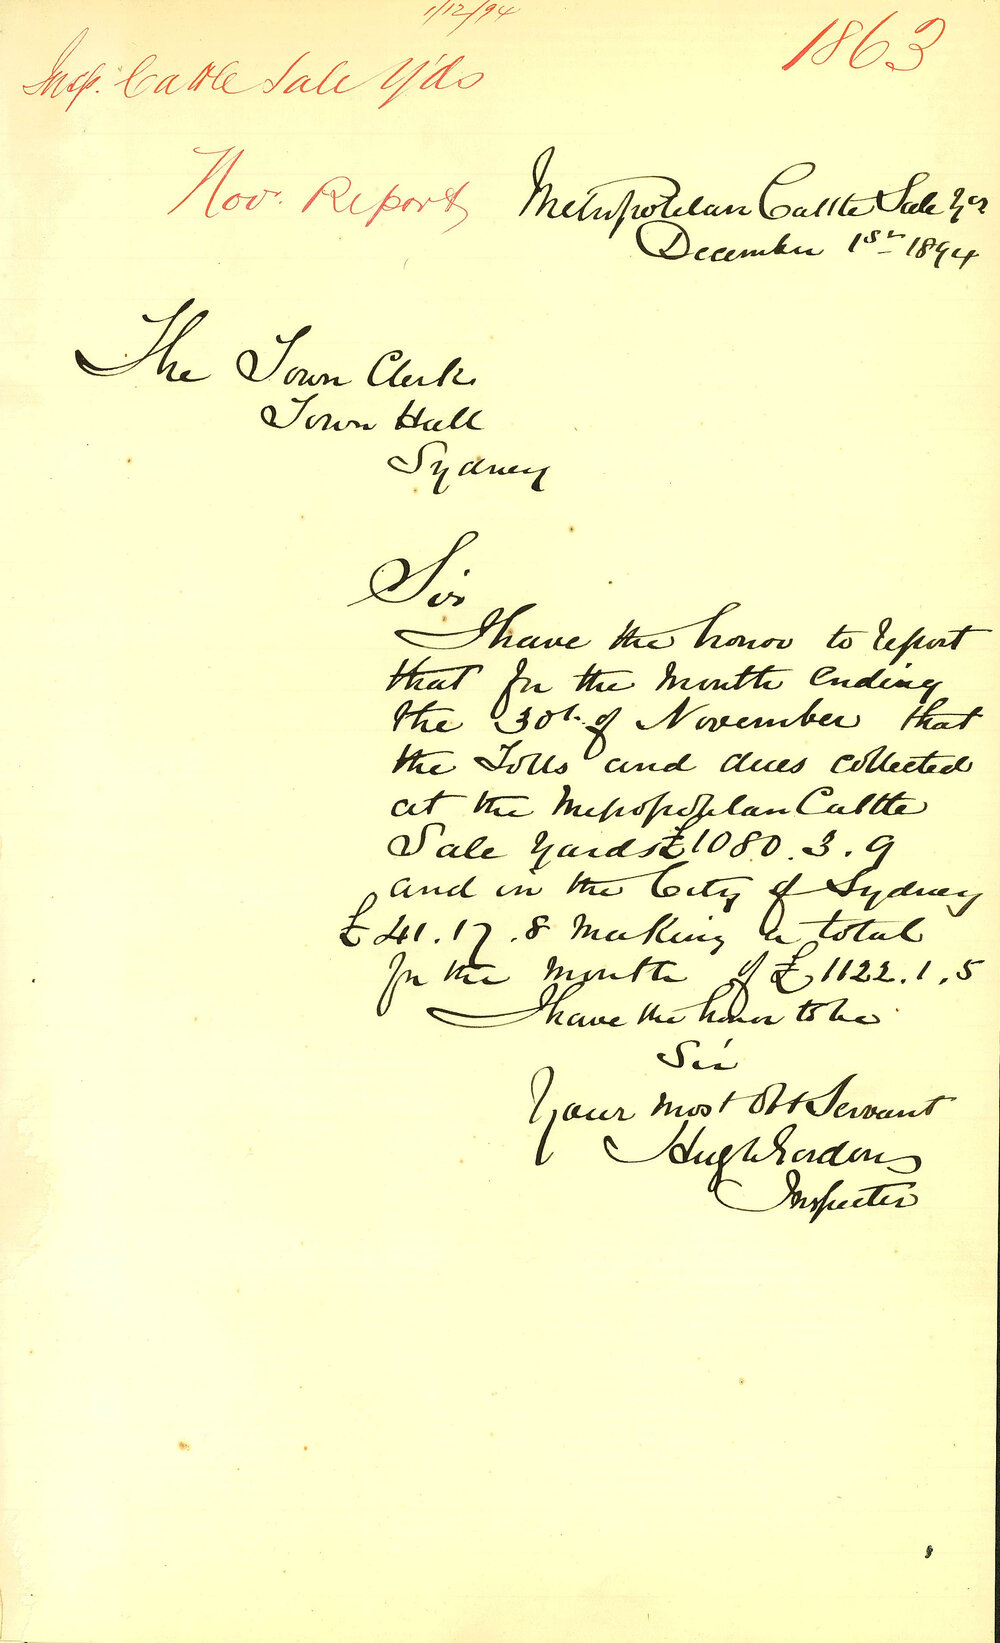 1/12/94
1863
Insp. Cattle Sale Y'ds
Nov. Report
Metropolitan Cattle Sale Yds
December 1st 1894
The Town Clerk
Town Hall
Sydney
Sir
I have the honor to report
that for the Month ending
the 30th of November that
the Tolls and dues collected
at the Metropolitan Cattle
Sale Yards £1080.3.9
and in the City of Sydney
£41.17.8 making a total
for the month of £1122.1.5
I have the honor to be
Sir
Your most Obt Servant
Hugh Gordon
Inspector